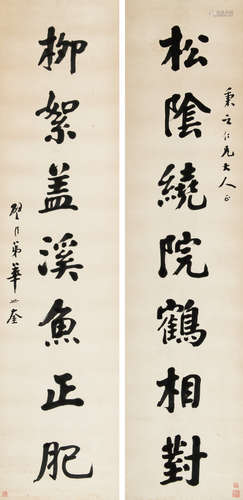 松陰繞院鶴相對
秉之仁兄大人正
柳絮盖溪魚正肥
弟華世奎